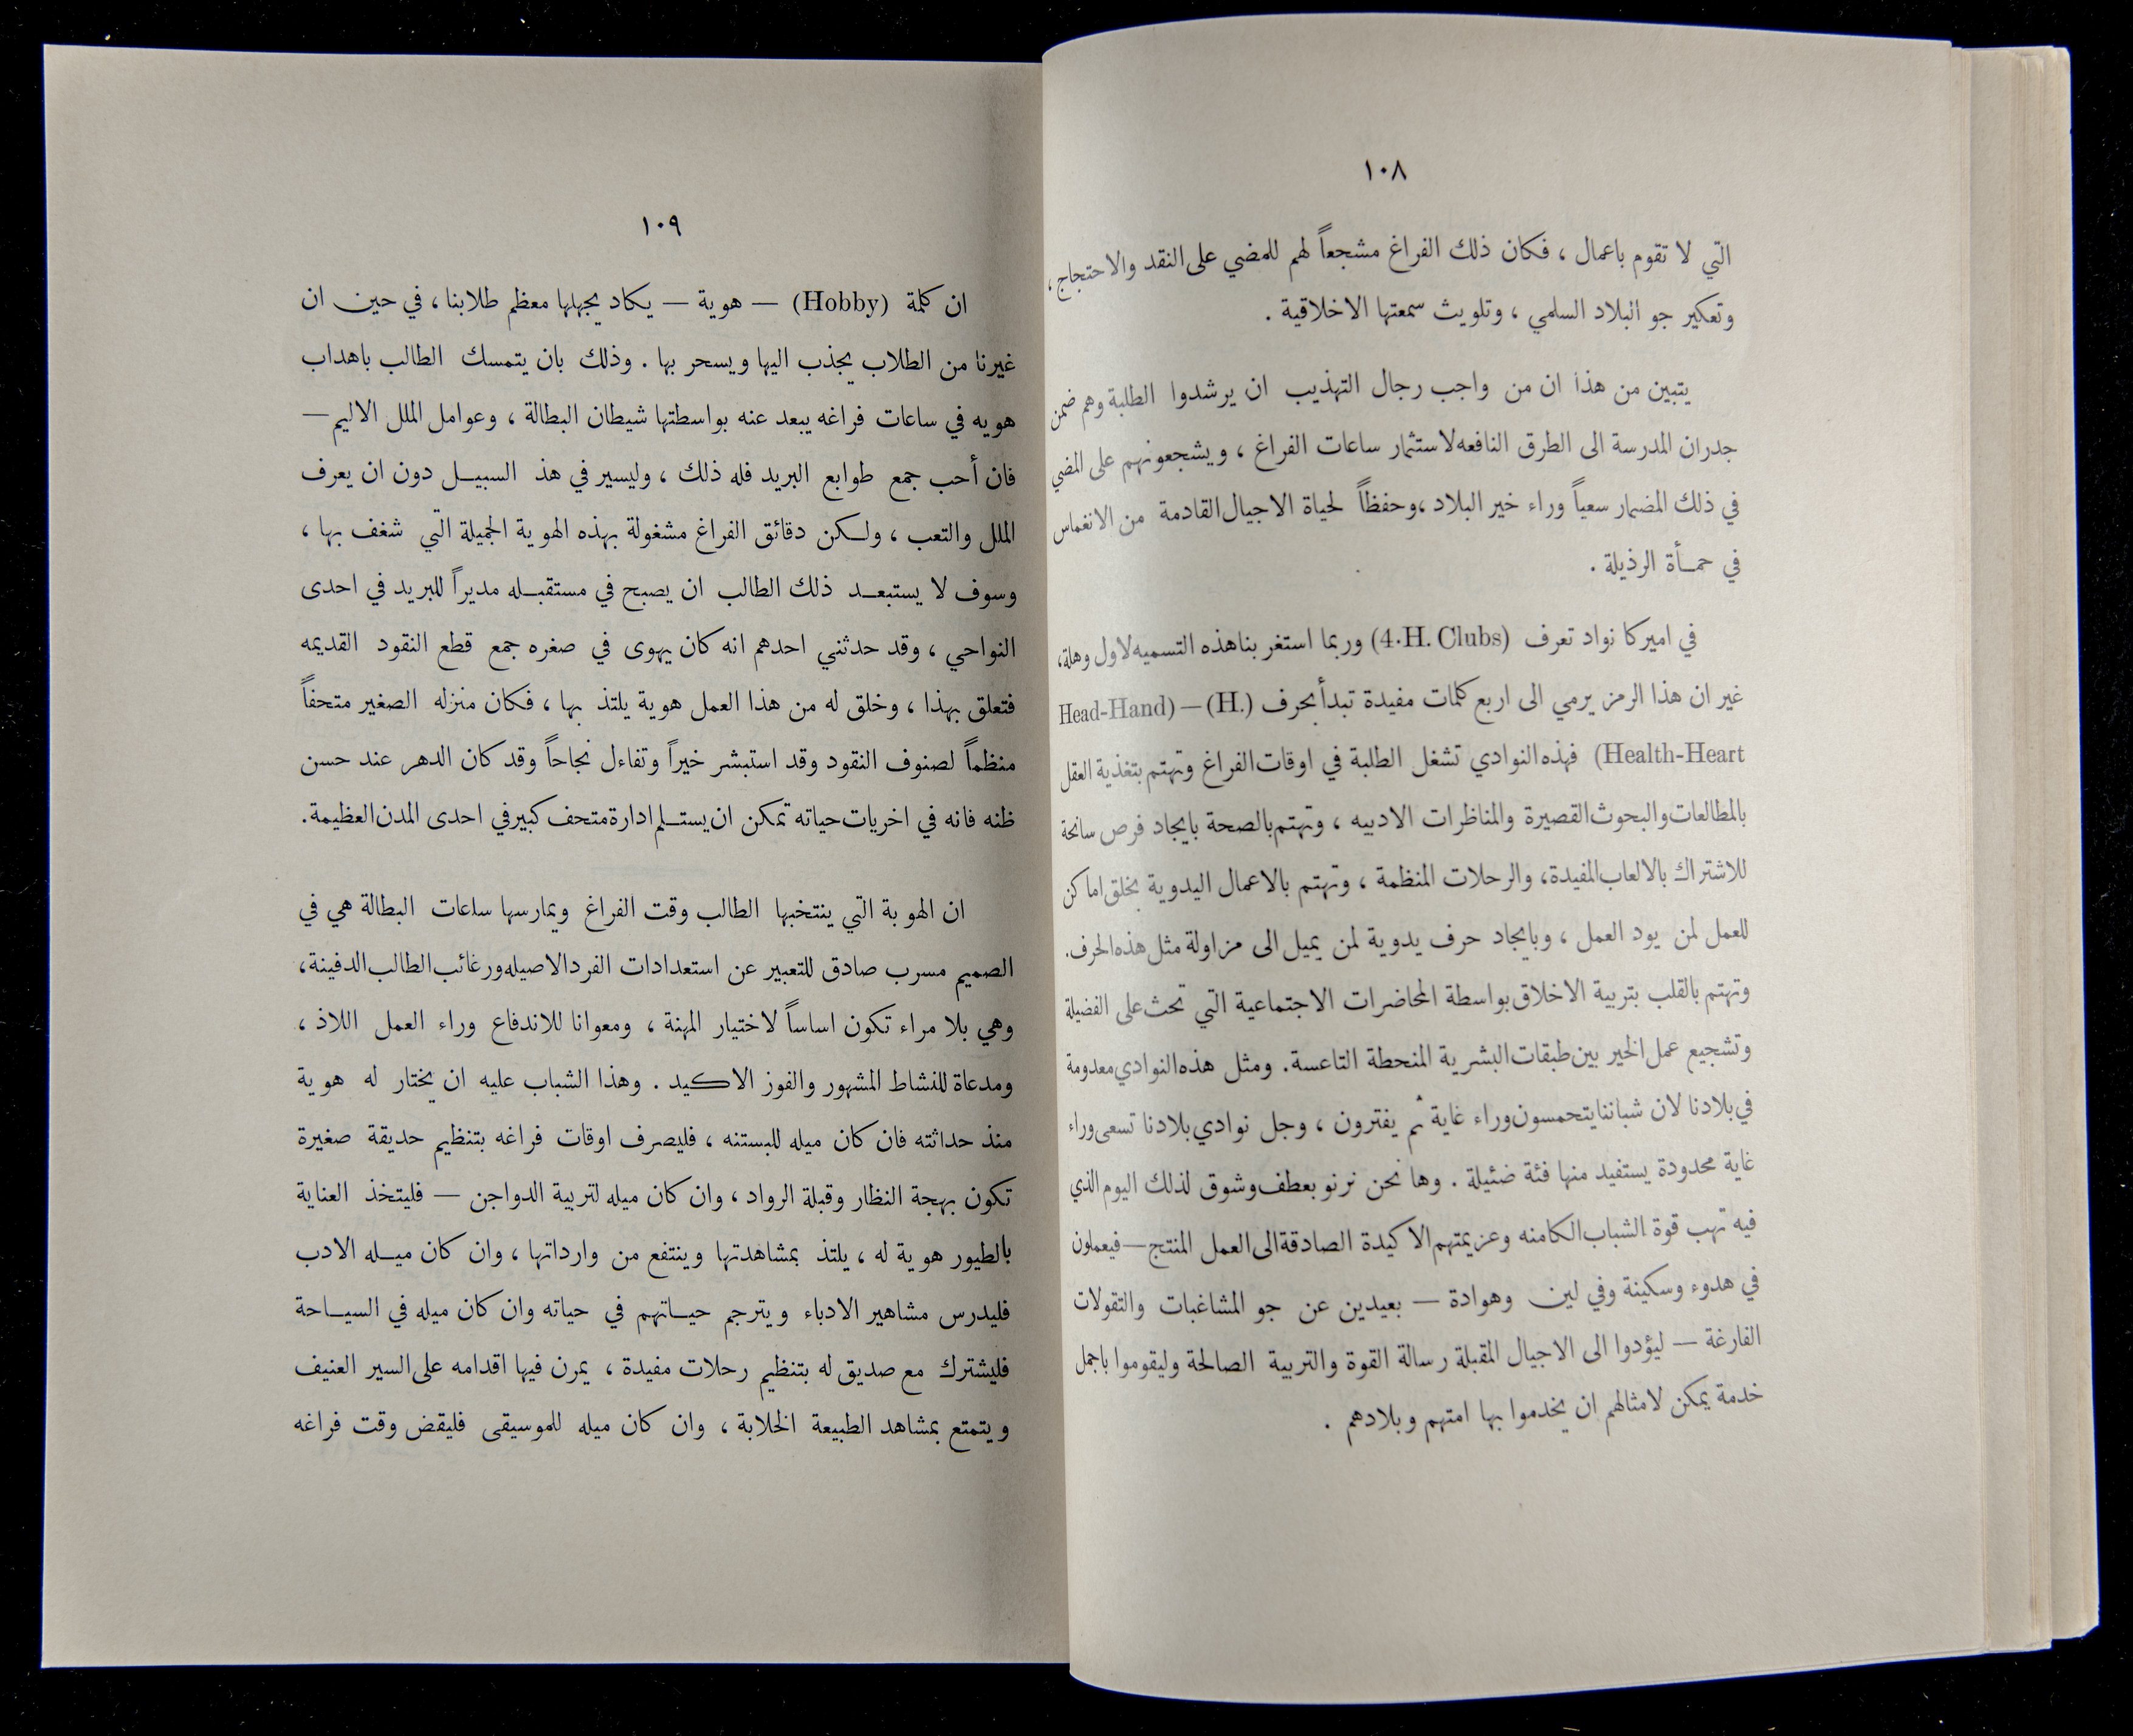 ١٠٨
التي لا تقوم باعمال ، فكان ذلك الفراغ مشجعاً لهم للمضي على النقد والاحتجاج ،
وتعكير جو البلاد السلمي ، وتلويث سمعتها الاخلاقية .
يتبين من هذا ان من واجب رجال التهذيب ان يرشدوا الطلبة وهم ضمن
جدران المدرسة الى الطرق النافعه لاستثمار ساعات الفراغ ، ويشجعونهم على المضي
في ذلك المضمار سعياً وراء خير البلاد ، وحفظاً لحياة الاجيال القادمة من الانغماس
في حمأة الرذيلة .
في اميركا نواد تعرف (4.H. Clubs) وربما استغر بنا هذه التسميه لاول وهلة ،
غير ان هذا الرمز يرمي الى اربع كلمات مفيدة تبدأ بحرف (H.) — (Head-Hand
Health-Heart) فهذه النوادي تشغل الطلبة في اوقات الفراغ وتهتم بتغذية العقل
بالمطالعات والبحوث القصيرة والمناظرات الادبيه ، وتهتم بالصحة بايجاد فرص سانحة
للاشتراك بالالعاب المفيدة ، والرحلات المنظمة ، وتهتم بالاعمال اليدوية بخلق اماكن
للعمل لمن يود العمل ، وبايجاد حرف يدوية لمن يميل الى مزاولة مثل هذه الحرف .
وتهتم بالقلب بتربية الاخلاق بواسطة المحاضرات الاجتماعية التي تحث على الفضيلة
وتشجيع عمل الخير بين طبقات البشرية المنحطة التاعسة . ومثل هذه النوادي معدومة
في بلادنا لان شباننا يتحمسون وراء غاية ثم يفترون ، وجل نوادي بلادنا تسعى وراء
غاية محدودة يستفيد منها فئة ضئيلة . وها نحن نرنو بعطف وشوق لذلك اليوم الذي
فيه تهب قوة الشباب الكامنه وعزيمتهم الاكيدة الصادقة الى العمل المنتج — فيعملون
في هدوء وسكينة وفي لين وهوادة — بعيدين عن جو المشاغبات والتقولات
الفارغة — ليؤدوا الى الاجيال المقبلة رسالة القوة والتربية الصالحة وليقوموا باجمل
خدمة يمكن لامثالهم ان يخدموا بها امتهم وبلادهم .
١٠٩
ان كلمة (Hobby) — هوية — يكاد يجهلها معظم طلابنا ، في حين ان
غيرنا من الطلاب يجذب اليها ويسحر بها . وذلك بان يتمسك الطالب باهداب
هويه في ساعات فراغه يبعد عنه بواسطتها شيطان البطالة ، وعوامل الملل الاليم —
فان أحب جمع طوابع البريد فله ذلك ، وليسير في هذ السبيل دون ان يعرف
الملل والتعب ، ولكن دقائق الفراغ مشغولة بهذه الهوية الجميلة التي شغف بها ،
وسوف لا يستبعد ذلك الطالب ان يصبح في مستقبله مديراً للبريد في احدى
النواحي ، وقد حدثني احدهم انه كان يهوى في صغره جمع قطع النقود القديمه
فتعلق بهذا ، وخلق له من هذا العمل هوية يلتذ بها ، فكان منزله الصغير متحفاً
منظماً لصنوف النقود وقد استبشر خيراً وتفاءل نجاحاً وقد كان الدهر عند حسن
ظنه فانه في اخريات حياته تمكن ان يستلم ادارة متحف كبير في احدى المدن العظيمة .
ان الهوية التي ينتخبها الطالب وقت الفراغ ويمارسها ساعات البطالة هي في
الصميم مسرب صادق للتعبير عن استعدادات الفرد الاصيله ورغائب الطالب الدفينة ،
وهي بلا مراء تكون اساساً لاختيار المهنة ، ومعوانا للاندفاع وراء العمل اللاذ ،
ومدعاة للنشاط المشهور والفوز الاكيد . وهذا الشباب عليه ان يختار له هوية
منذ حداثته فان كان ميله للبستنه ، فليصرف اوقات فراغه بتنظيم حديقة صغيرة
تكون بهجة النظار وقبلة الرواد ، وان كان ميله لتربية الدواجن — فليتخذ العناية
بالطيور هوية له ، يلتذ بمشاهدتها وينتفع من وارداتها ، وان كان ميله الادب
فليدرس مشاهير الادباء ويترجم حياتهم في حياته وان كان ميله في السياحة
فليشترك مع صديق له بتنظيم رحلات مفيدة ، يمرن فيها اقدامه على السير العنيف
ويتمتع بمشاهد الطبيعة الخلابة ، وان كان ميله للموسيقى فليقض وقت فراغه